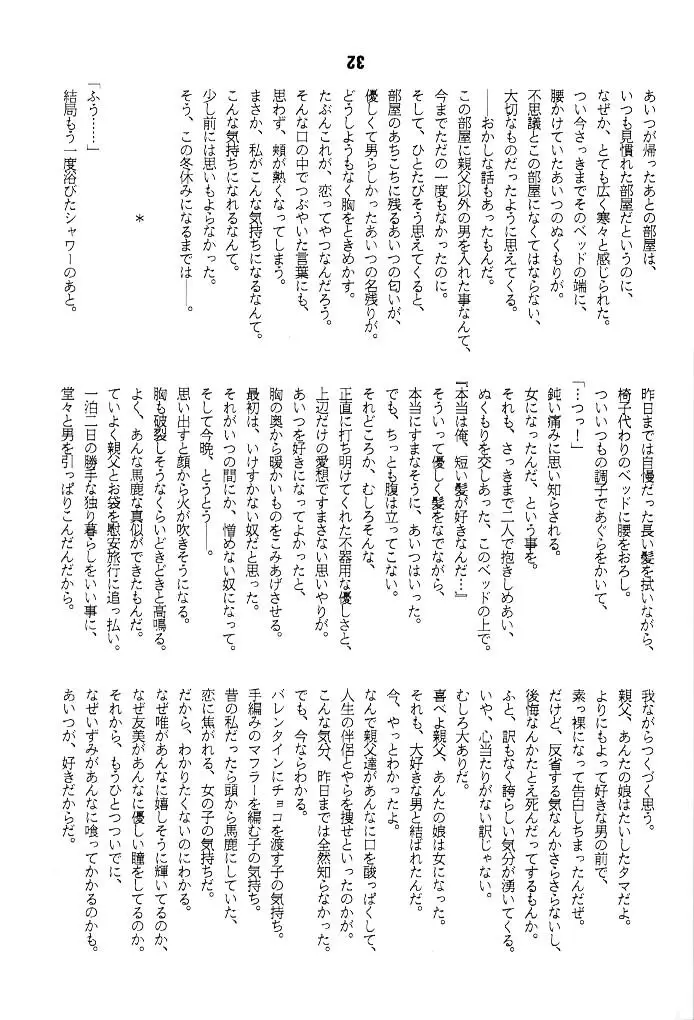 32
あいつが帰ったあとの部屋は、
いつも見慣れた部屋だというのに、
なぜか、とても広く寒々と感じられた。
つい今さっきまでそのベッドの端に、
腰かけていたあいつのぬくもりが。
不思議とこの部屋になくてはならない、
大切なものだったように思えてくる。
──おかしな話もあったもんだ。
この部屋に親父以外の男を入れた事なんて、
今までただの一度もなかったのに。
そして、ひとたびそう思えてくると、
部屋のあちこちに残るあいつの匂いが、
優しくて男らしかったあいつの名残りが。
どうしようもなく胸をときめかす。
たぶんこれが、恋ってやつなんだろう。
そんな口の中でつぶやいた言葉にも、
思わず、頬が熱くなってしまう。
まさか、私がこんな気持ちになるなんて。
こんな気持ちになれるなんて。
少し前には思いもよらなかった。
そう、この冬休みになるまでは──。
*
「ふう……」
結局もう一度浴びたシャワーのあと。
昨日までは自慢だった長い髪を拭いながら、
椅子代わりのベッドに腰をおろし。
ついいつもの調子であぐらをかいて、
「…つっ！」
鈍い痛みに思い知らされる。
女になったんだ、という事を。
それも、さっきまで二人で抱きしめあい、
ぬくもりを交しあった、このベッドの上で。
『本当は俺、短い髪が好きなんだ…』
そういって優しく髪をなでながら、
本当にすまなそうに、あいつはいった。
でも、ちっとも腹は立ってこない。
それどころか、むしろそんな、
正直に打ち明けてくれた不器用な優しさと、
上辺だけの愛想ですまさない思いやりが。
あいつを好きになってよかったと、
胸の奥から暖かいものをこみあげさせる。
最初は、いけすかない奴だと思った。
それがいつの間にか、憎めない奴になって。
そして今晩、とうとう──。
思い出すと顔から火が吹きそうになる。
胸も破裂しそうなくらいどきどきと高鳴る。
よく、あんな馬鹿な真似ができたもんだ。
ていよく親父とお袋を慰安旅行に追っ払い。
一泊二日の勝手な独り暮らしをいい事に、
堂々と男を引っぱりこんだんだから。
我ながらつくづく思う。
親父、あんたの娘はたいしたタマだよ。
よりにもよって好きな男の前で、
素っ裸になって告白しちまったんだぜ。
だけど、反省する気なんかさらさらないし、
後悔なんかたとえ死んだってするもんか。
ふと、訳もなく誇らしい気分が湧いてくる。
いや、心当たりがない訳じゃない。
むしろ大ありだ。
喜べよ親父、あんたの娘は女になった。
それも、大好きな男と結ばれたんだ。
今、やっとわかったよ。
なんで親父達があんなに口を酸っぱくして、
人生の伴侶とやらを捜せといったのかが。
こんな気分、昨日までは全然知らなかった。
でも、今ならわかる。
バレンタインにチョコを渡す子の気持ち。
手編みのマフラーを編む子の気持ち。
昔の私だったら頭から馬鹿にしていた、
恋に焦がれる、女の子の気持ちだ。
だから、わかりたくないのにわかる。
なぜ唯があんなに嬉しそうに輝いてるのか、
なぜ友美があんなに優しい瞳をしてるのか。
それから、もうひとつついでに、
なぜいずみがあんなに喰ってかかるのかも。
あいつが、好きだからだ。